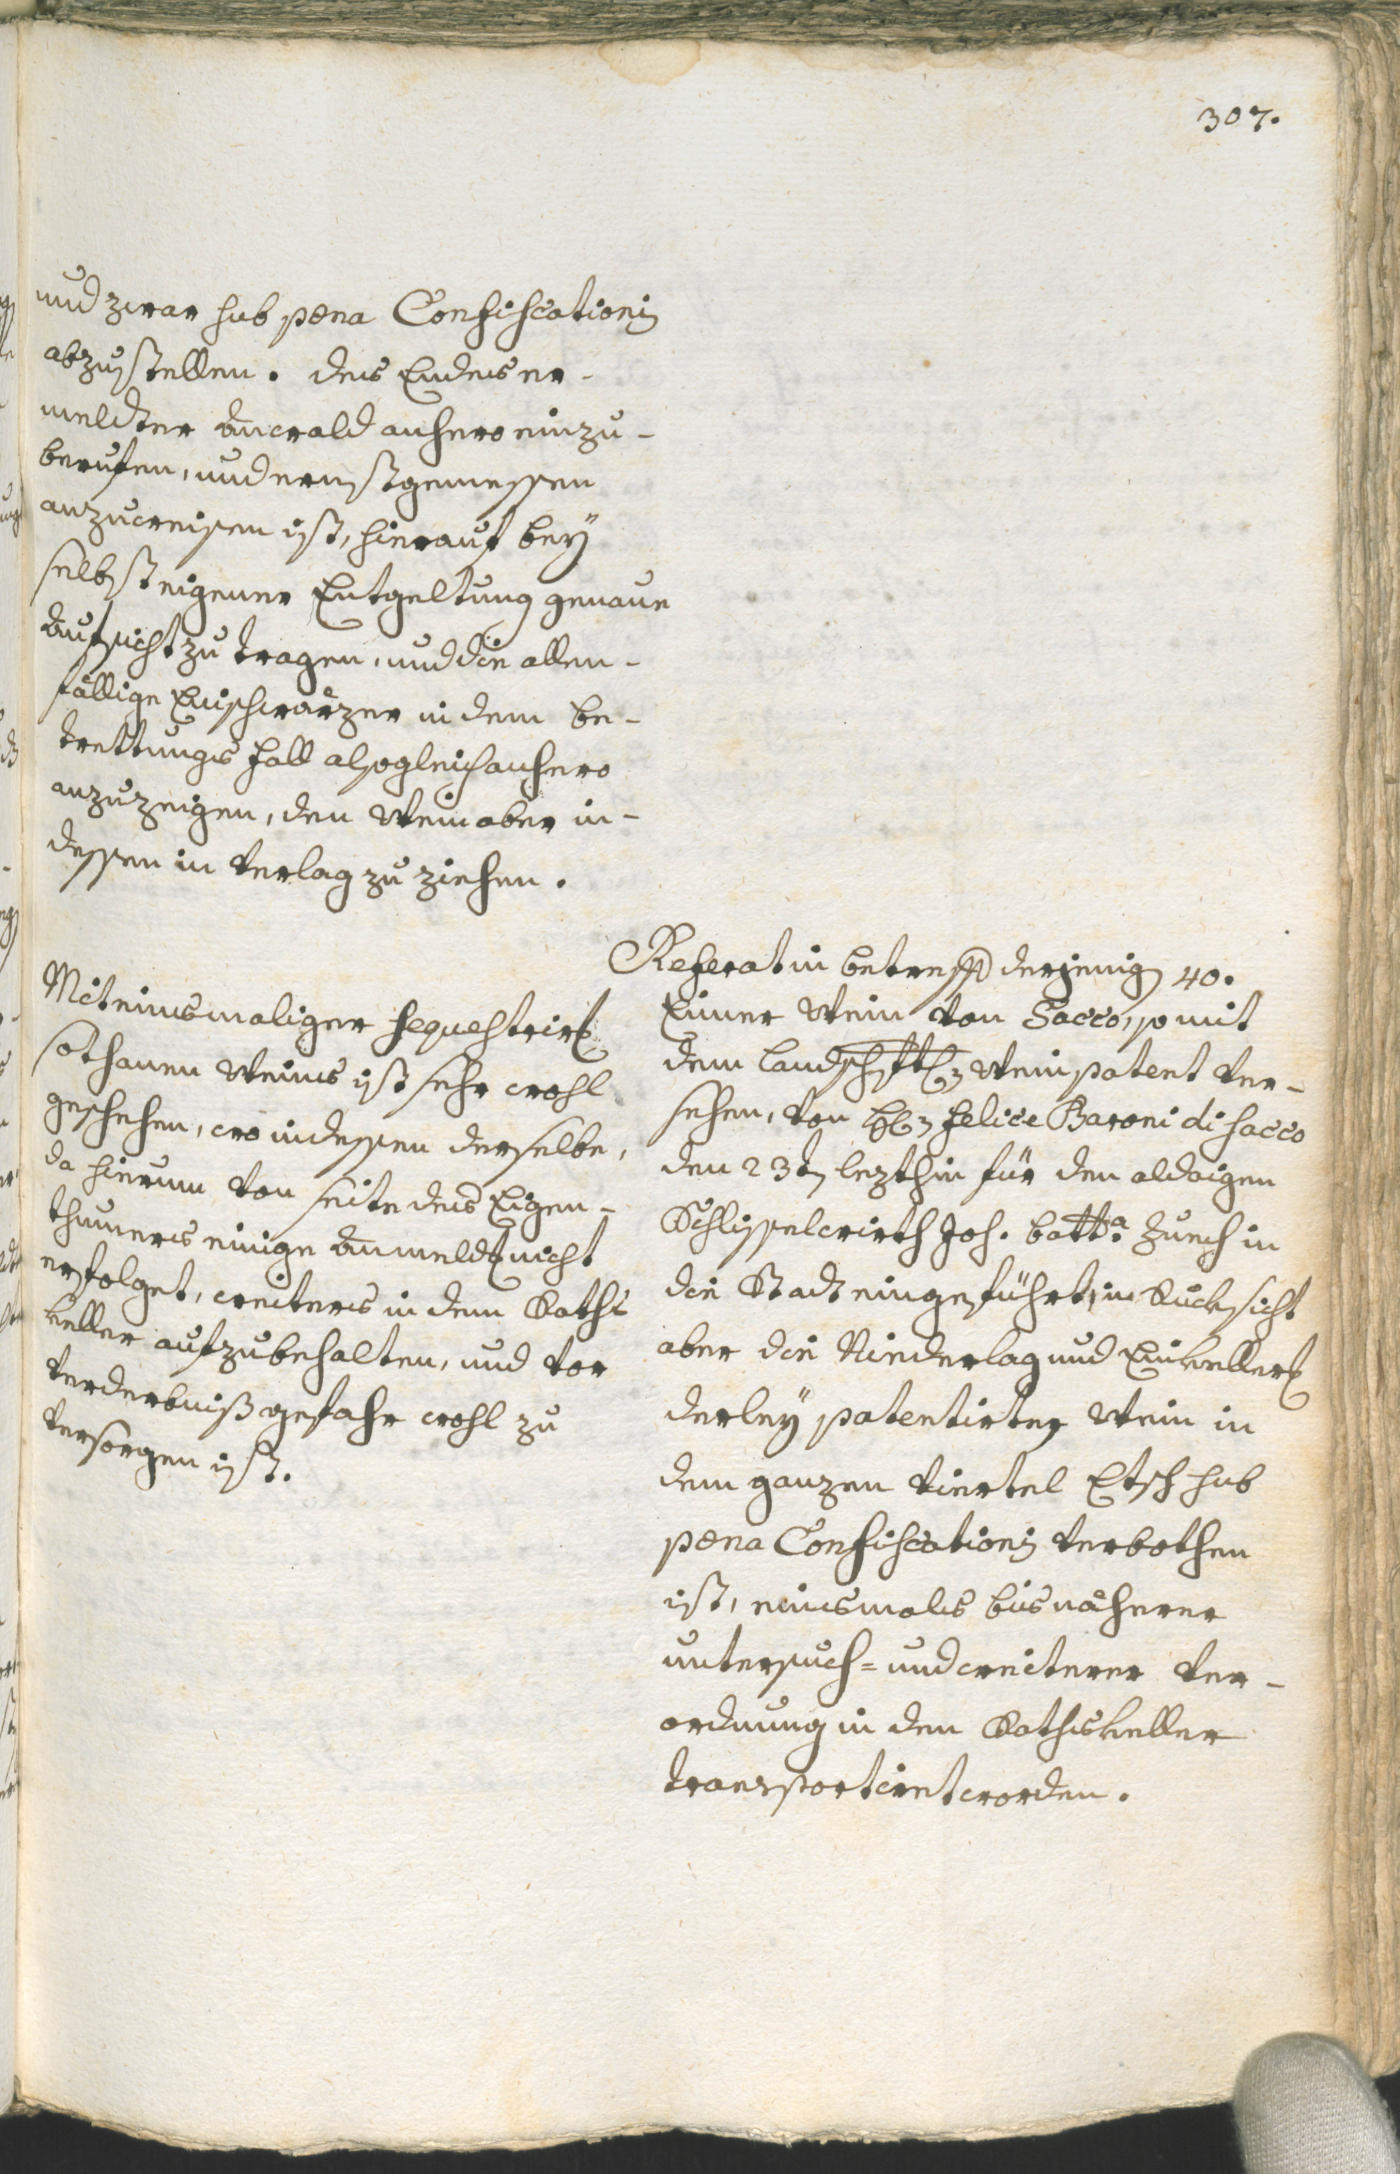 307.
und zwar sub pœna Confiscationis
abzustellen. des Endes er-
meldter Anwald anhero einzu-
berufen, und ernstgemessen
anzuweisen ist, hierauf bey
selbst eigener Entgeltung genaue
Aufsicht zu tragen, und die allen-
fällige Einschwärzer in dem be-
trettungs Fall alsogleich anhero
anzuzeigen, den Wein aber in-
dessen in Verlag zu ziehen.
Mit einsmaliger sequestrirg
sothanen Weins ist sehr wohl
geschehen, wo indessen derselbe,
da hierum von seite des Eigen-
thumers einige Anmeldg nicht
erfolget, weiters in dem Raths
keller aufzubehalten, und vor
Verderbniß gefahr wohl zu
versorgen ist.
Referat in betreff derjenigen 40.
Eimer Wein von Sacco, so mit
dem landschftl. Weinpatent ver-
sehen, von H. Felice Baroni di Sacco
den 23ten lezthin für den aldaigen
Schlisselwirth Joh. Batta. Zuech in
die Stadt eingeführt, in Rucksicht
aber die Niederlag und Einkellerg
derley patentirten Wein in
dem ganzen Viertel Etsch sub
pœna Confiscationis verbothen
ist, einsmals bis näherer
untersuch= und weiterer Ver-
ordnung in den Rathskeller
transportiert worden.